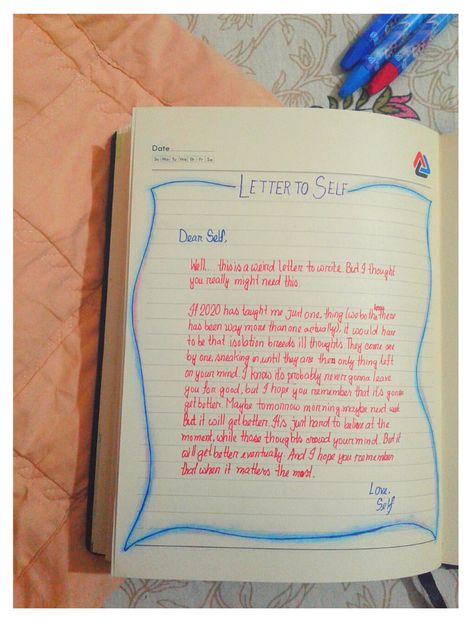 Date
Su Mo Tu We Th Fr Sa
LETTER TO SELF
Dear Self,
Well... this is a weird letter to write. But I thought
you really might need this.
If 2020 has taught me just one thing (we both know there
has been way more than one actually), it would have
to be that isolation breeds ill thoughts. They come one
by one, sneaking in, until they are the only thing left
on your mind. I know its probably never gonna leave
you for good, but I hope you remember that it's gonna
get better. Maybe tomorrow morning, maybe next week
But it will get better. It's just hard to believe at the
moment, while those thoughts crowd your mind. But it
will get better eventually. And I hope you remember
that when it matters the most.
Love,
Self